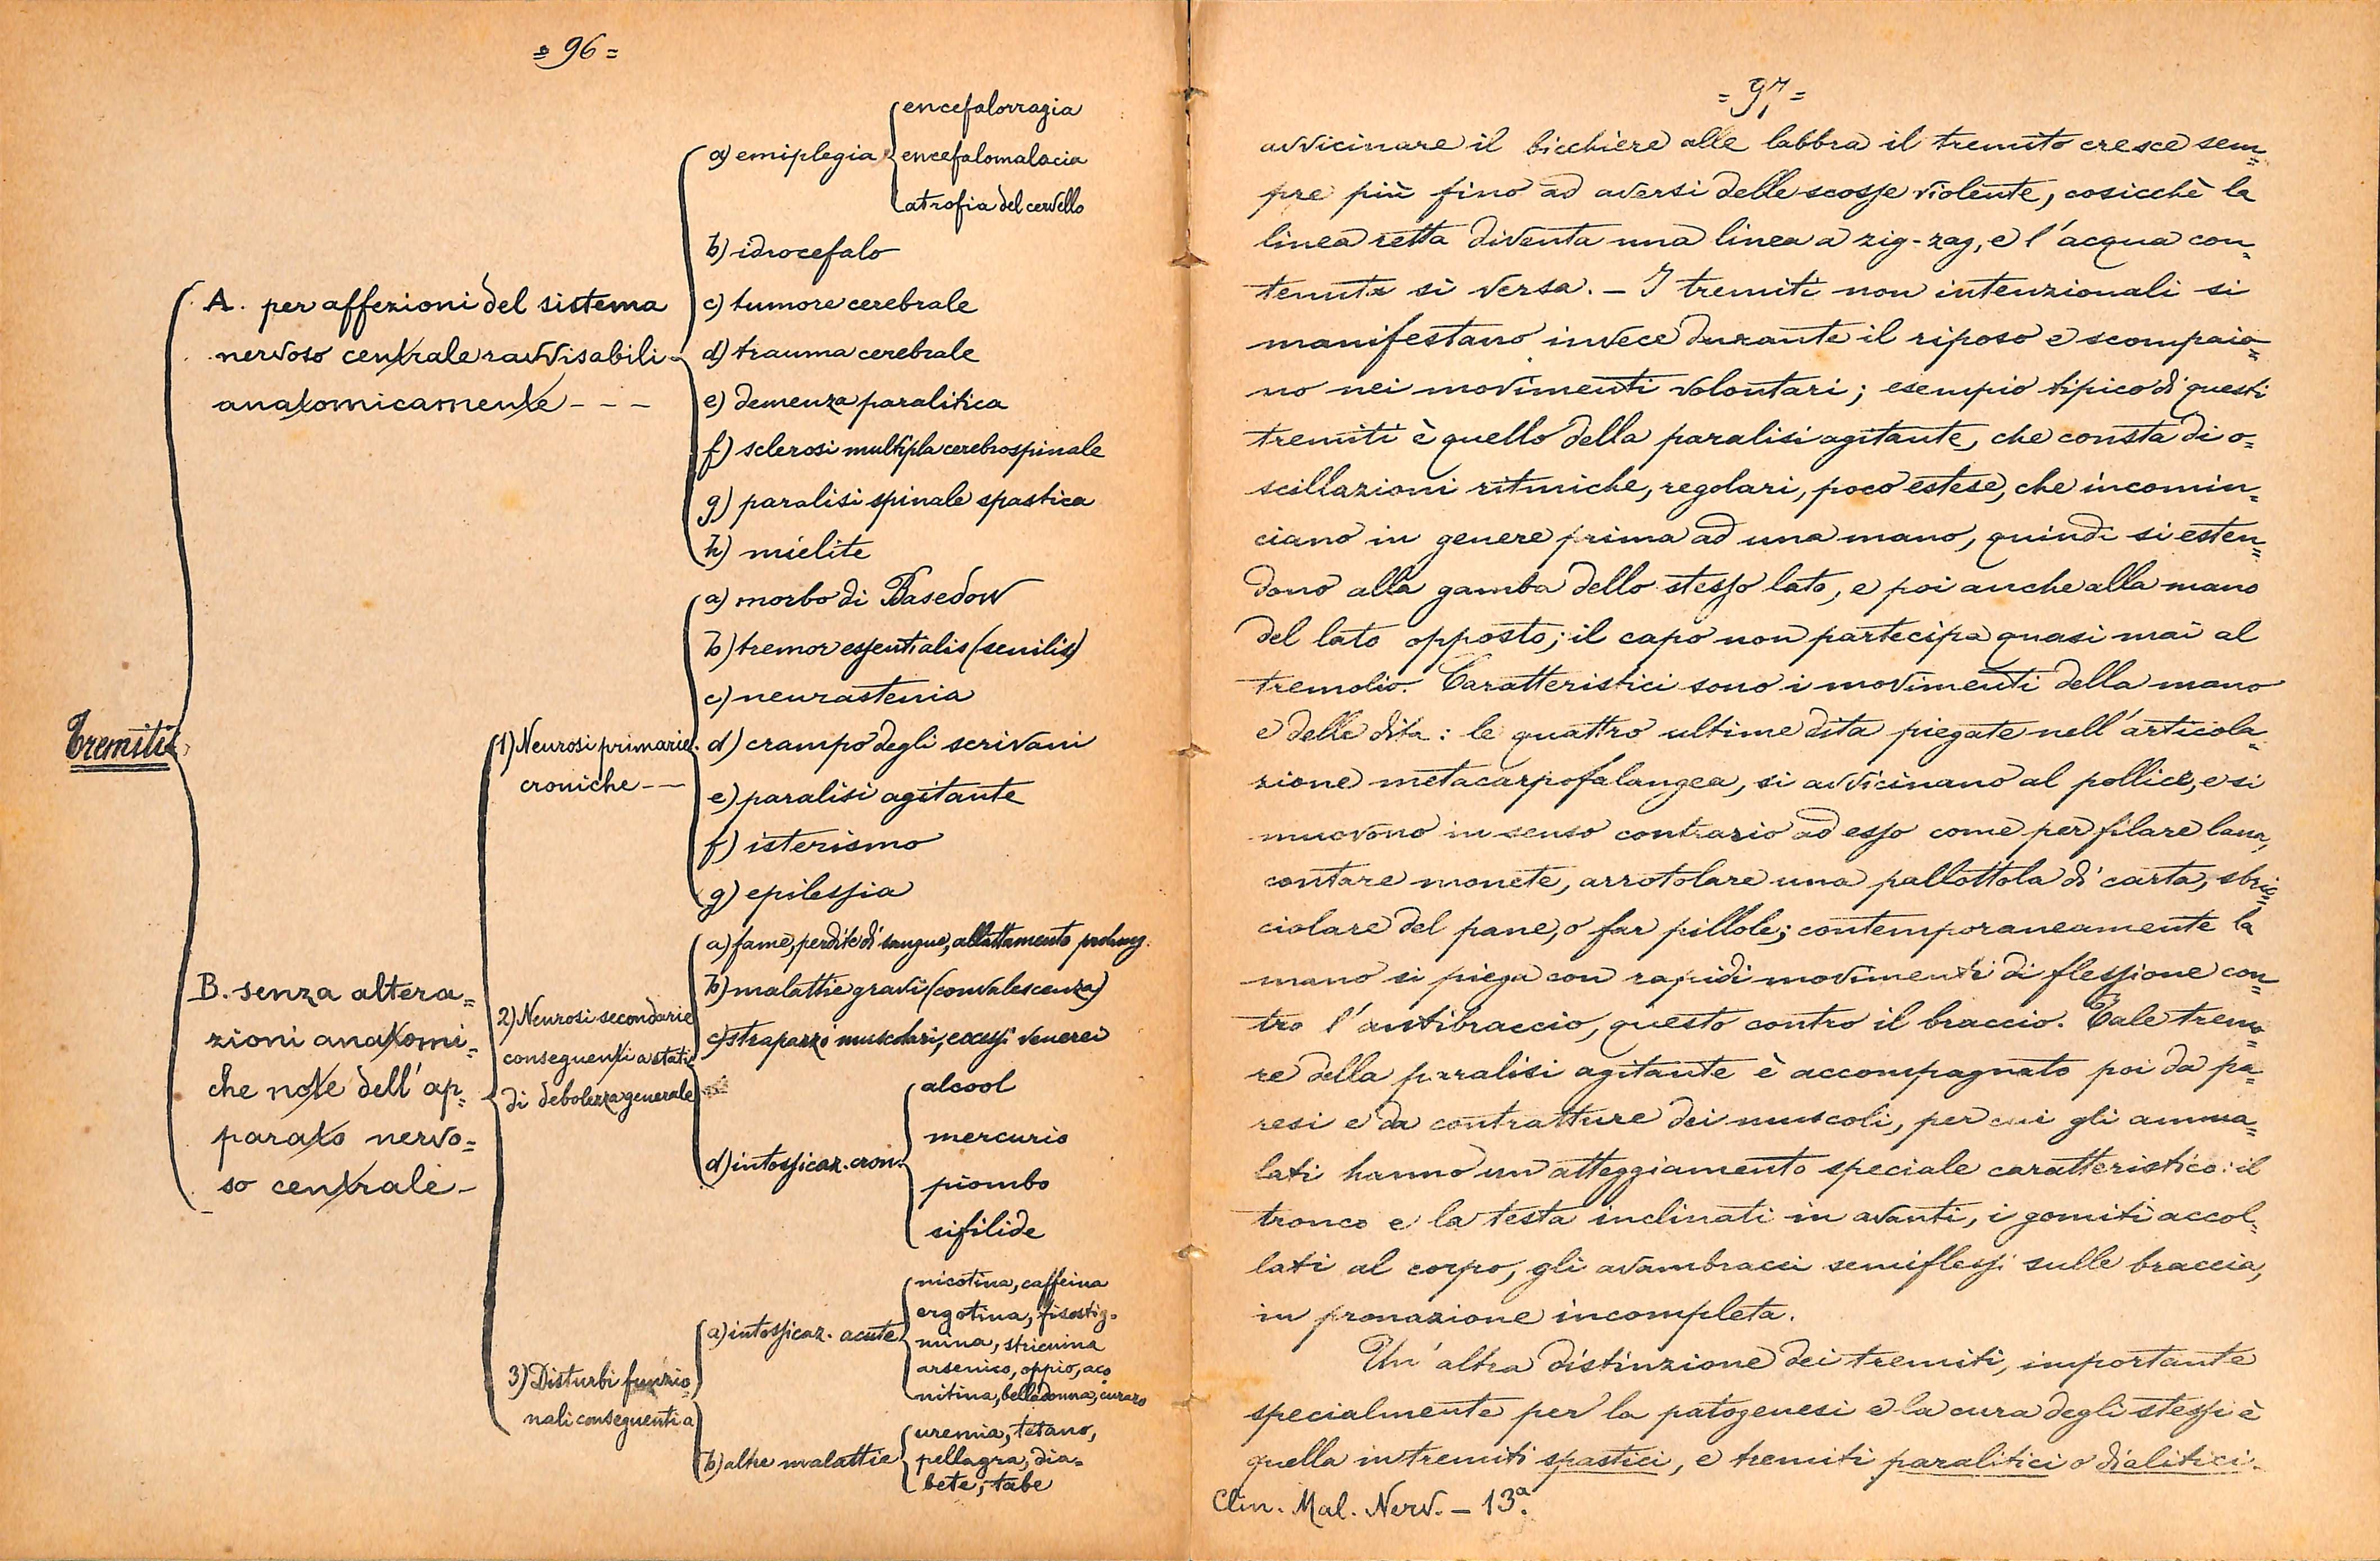 = 96 =
Tremiti
A. per affezioni del sistema
nervoso centrale ravvisabili
anatomicamente - - -
a) emiplegia
encefalorragia
encefalomalacia
atrofia del cervello
b) idrocefalo
c) tumore cerebrale
d) trauma cerebrale
e) demenza paralitica
f) sclerosi multipla cerebrospinale
g) paralisi spinale spastica
h) mielite
B. senza altera=
zioni anatomi=
che note dell'ap=
parato nervo=
so centrale -
1) Neurosi primarie
croniche - -
a) morbo di Basedow
b) tremor essentialis (senilis)
c) neurastenia
d) crampo degli scrivani
e) paralisi agitante
f) isterismo
g) epilessia
2) Neurosi secondarie
conseguenti a stati
di debolezza generale
a) fame, perdite di sangue, allattamento prolung.
b) malattie gravi (convalescenza)
c) strapazzi muscolari, eccessi venerei
d) intossicaz. cron.
alcool
mercurio
piombo
sifilide
3) Disturbi funzio=
nali conseguenti a
a) intossicaz. acute
nicotina, caffeina
ergotina, fisostig=
mina, stricnina
arsenico, oppio, aco
nitina, belladonna, curaro
b) altre malattie
uremia, tetano,
pellagra, dia=
bete, tabe
= 97 =
avvicinare il bicchiere alle labbra il tremito cresce sem=
pre più fino ad aversi delle scosse violente, cosicchè la
linea retta diventa una linea a zig-zag, e l'acqua con=
tenuta si versa. - I tremiti non intenzionali si
manifestano invece durante il riposo e scompaio=
no nei movimenti volontari; esempio tipico di questi
tremiti è quello della paralisi agitante, che consta di o=
scillazioni ritmiche, regolari, poco estese, che incomin=
ciano in genere prima ad una mano, quindi si esten=
dono alla gamba dello stesso lato, e poi anche alla mano
del lato opposto; il capo non partecipa quasi mai al
tremolio. Caratteristici sono i movimenti della mano
e delle dita: le quattro ultime dita piegate nell'articola=
zione metacarpofalangea, si avvicinano al pollice, e si
muovono in senso contrario ad esso come per filare lana,
contare monete, arrotolare una pallottola di carta, sbric=
ciolare del pane, o far pillole; contemporaneamente la
mano si piega con rapidi movimenti di flessione con=
tro l'antibraccio, questo contro il braccio. Tale tremo=
re della paralisi agitante è accompagnato poi da pa=
resi e da contratture dei muscoli, per cui gli amma=
lati hanno un atteggiamento speciale caratteristico: il
tronco e la testa inclinati in avanti, i gomiti accol=
lati al corpo, gli avambracci semiflessi sulle braccia,
in pronazione incompleta.
Un'altra distinzione dei tremiti, importante
specialmente per la patogenesi e la cura degli stessi è
quella in tremiti spastici, e tremiti paralitici o dialitici.
Clin. Mal. Nerv. - 13ª.